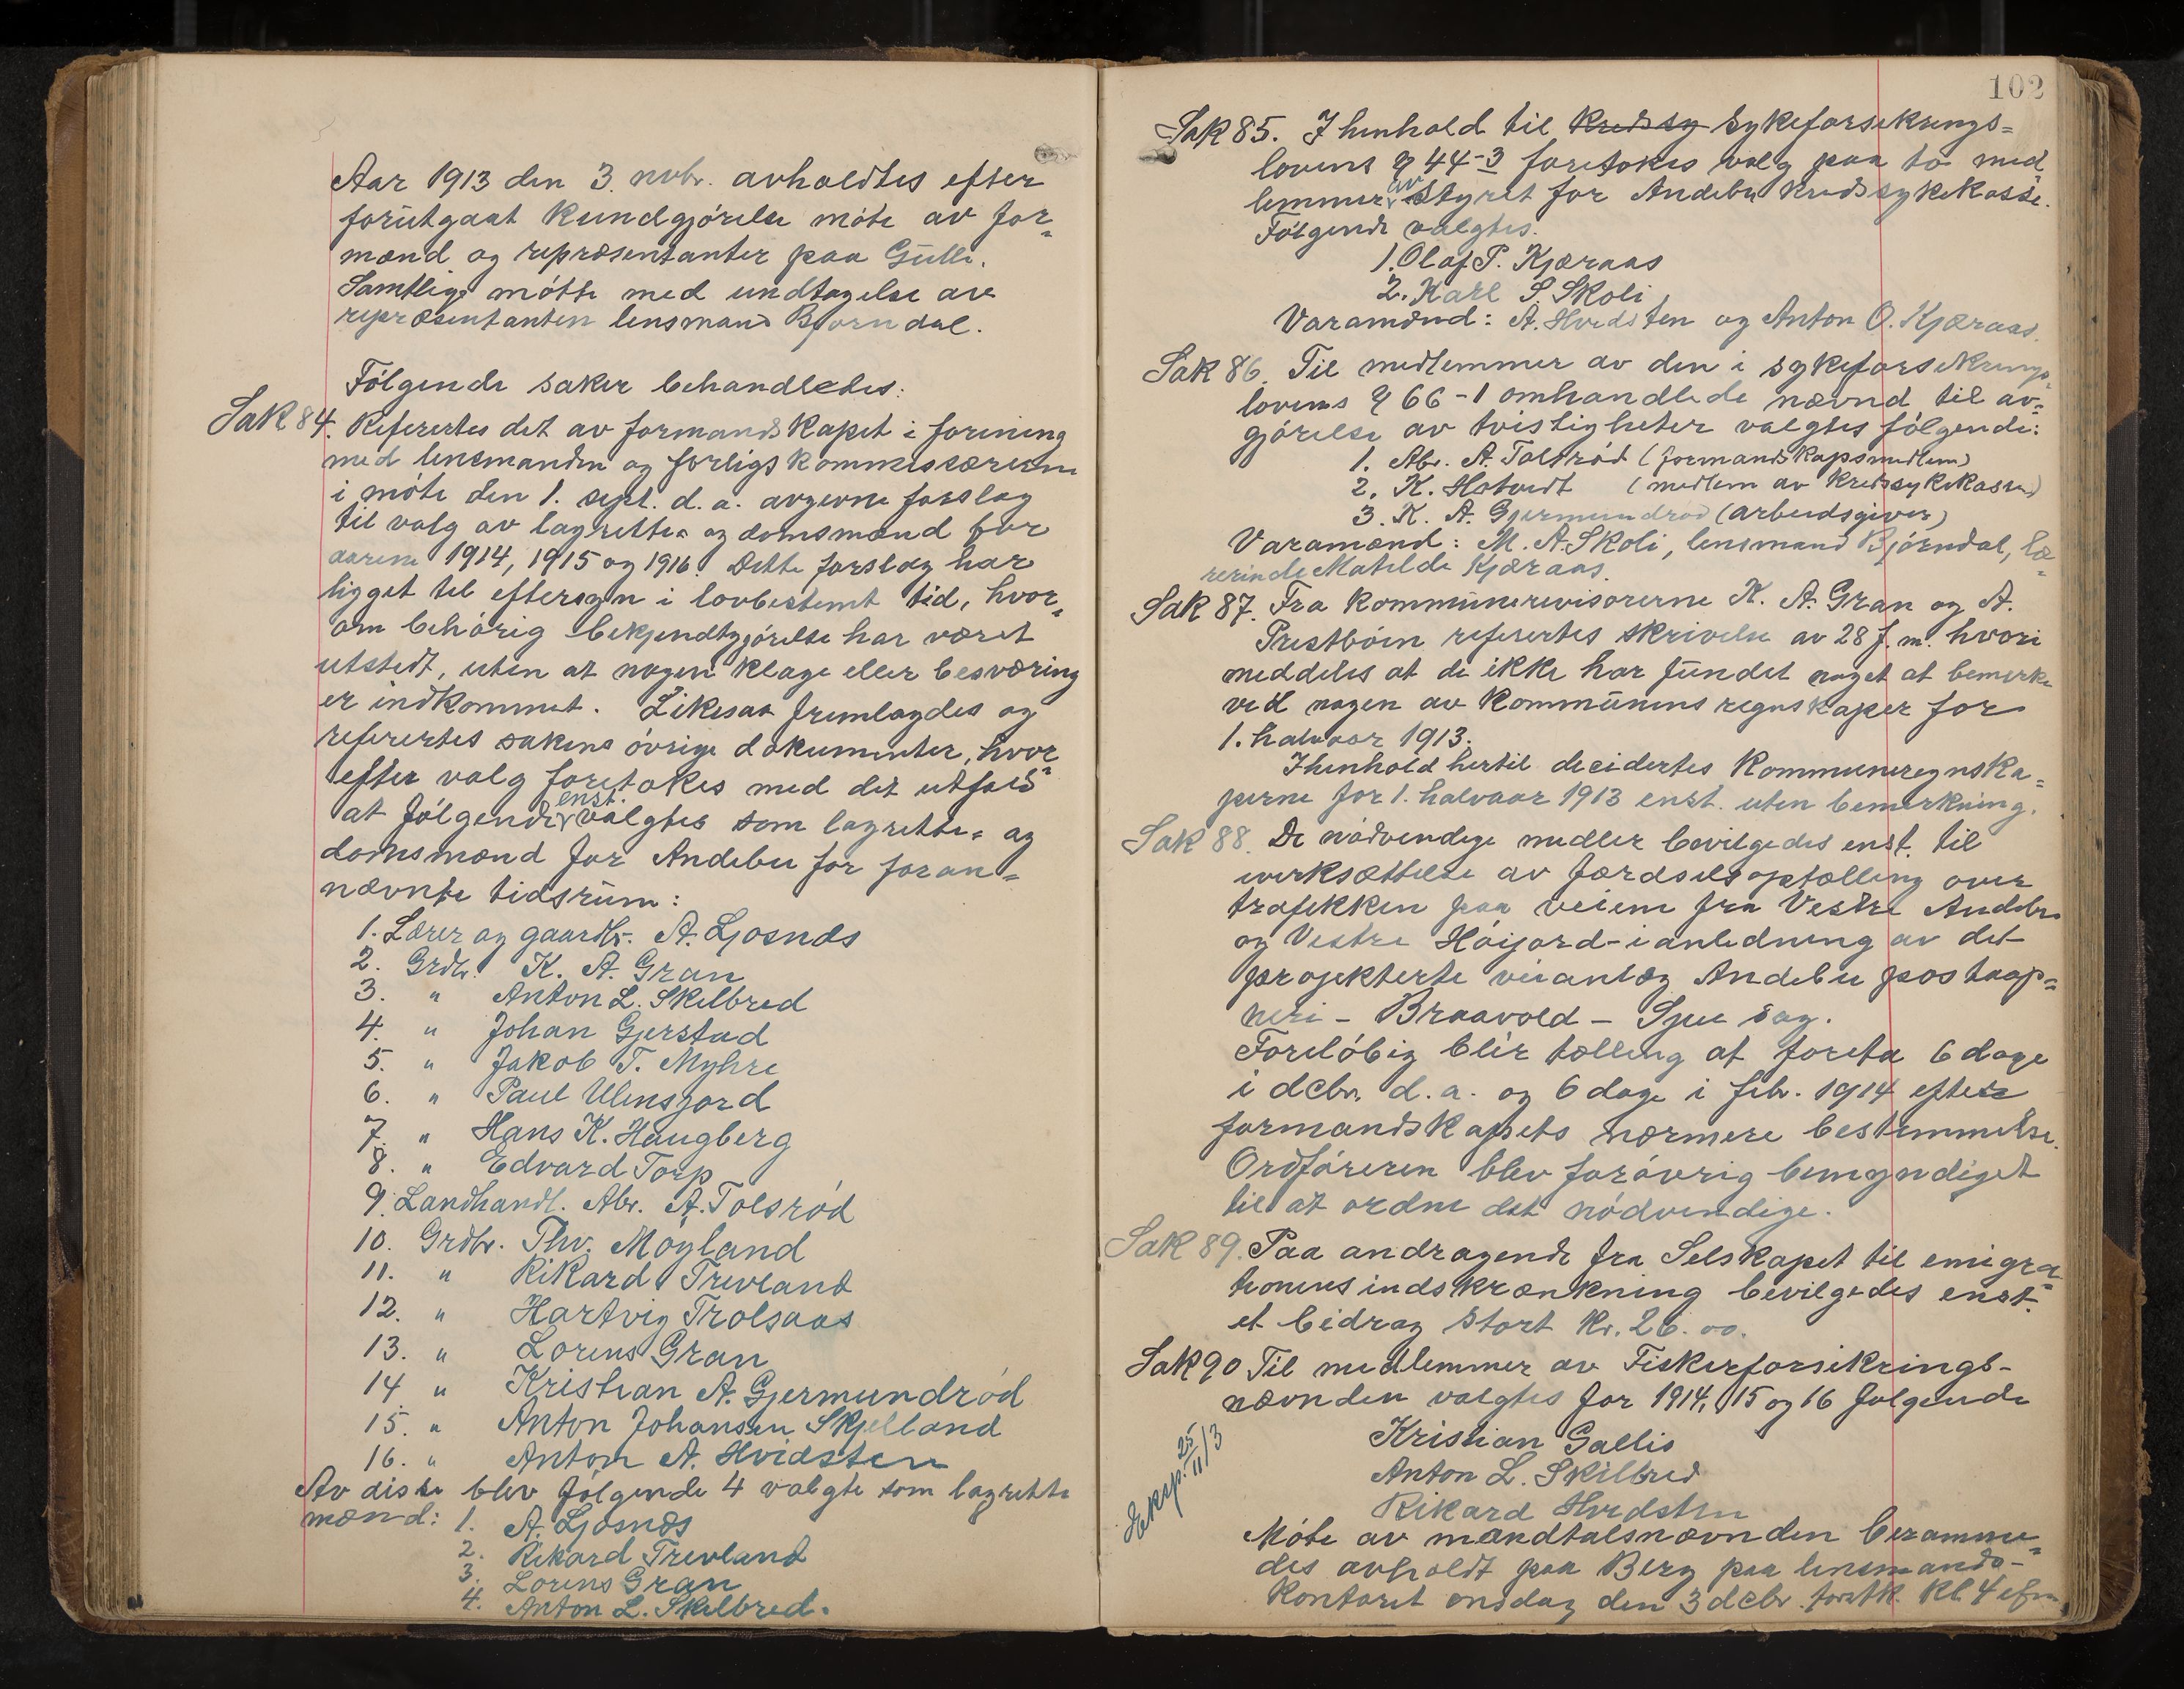 Aar 1913 den 3. nvbr. avholdtes efter
forutgaat kundgjörelse möte av for=
mænd og repræsentanter paa Gulli.
Samtlige mötte med undtagelse av
repræsentanten lensmand Bjørndal.
Fölgende saker behandledes:
Sak 84. Refertes det av formandskapet i forening
med lensmanden og forligskommissærerne
i möte den 1. sept. d. a. avgevne forslag
til valg av lagrette= og domsmænd for
aarene 1914, 1915 og 1916. Dette forslag har
ligget til eftersyn i lovbestemt tid, hvor=
om behörig bekjendtgjörelse har været
utstedt, uten at nogen klage eller besværing
er indkommet. Likesaa fremlagdes og
refertes sakens övrige dokumenter, hvor=
efter valg foretokes med det utfald
at fölgende enst. valgtes som lagrette= og
domsmænd for Andebu for foran=
nævnte tidsrum:
1. Lærer og gaardbr. A. Ljosnes
2. Grdbr. K. A. Gran
3. " Anton L. Skilbred
4. " Johan Gjerstad
5. " Jakob T. Myhre
6. " Paul Ulensjord
7. " Hans K. Haugberg
8. " Edvard Torp
9. Landhandl. Abr. A. Tolsröd
10. Grdbr. Thv. Möyland
11. " Rikard Trevland
12. " Hartvig Trolsaas
13. " Lorens Gran
14 " Kristian A. Gjermundröd
15. " Anton Johansen Skjelland
16. " Anton A. Hvidsten
Av disse blev fölgende 4 valgte som lagrette
mænd: 1. A. Ljosnes
2. Rikard Trevland
3. Lorens Gran
4. Anton L. Skilbred.
102
Sak 85. I henhold til kredssy sykeforsikrings=
lovens § 44-3 foretokes valg paa to med
lemmer av styret for Andebu kredssykekasse.
Fölgende valgtes.
1. Olaf P. Kjæraas
2. Karl S. Skoli
Varamænd: A. Hvidsten og Anton O. Kjæraas.
Sak 86. Til medlemmer av den i sykeforsikrings=
lovens § 66-1 omhandlede nævnd til av=
gjörelse av tvistigheter valgtes fölgende:
1. Abr. A. Tolsröd (formandskapsmedlem)
2. K. Hotvedt (medlem av kredssykekassen)
3. K. A. Gjermundröd (arbeidsgiver)
Varamænd: M. A. Skoli, lensmand Bjørndal, læ=
rerinde Matilde Kjæraas.
Sak 87. Fra kommunerevisorerne K. A. Gran og A.
Prestböen refertes skrivelse av 28 f. m. hvori
meddeles at de ikke har fundet noget at bemerke
ved nogen av kommunens regnskaper for
1. halvaar 1913.
I henhold hertil decidertes kommuneregnska=
perne for 1. halvaar 1913 enst. uten bemerkning.
Sak 88. De nödvendige midler bevilgedes enst. til
iverksættelse av færdselsoptælling over
trafikken paa veiene fra Vestre Andebu
og Vestre Höijord i anledning av det
projekterte veianlæg Andebu postaap=
neri - Braavold - Sjue sag.
Forelöbig blir tælling at foreta 6 dage
i dcbr. d. a. og 6 dage i febr. 1914 efter
formandskapets nærmere bestemmelse.
Ordföreren blev forövrig bemyndiget
til at ordne det nödvendige.
Sak 89. Paa andragende fra Selskapet til emigra=
tionens indskrænkning bevilgedes enst.
et bidrag stort kr. 26.00.
Sak 90 Til medlemmer av Fiskerforsikrings-
nævnden valgtes for 1914, 15 og 16 fölgende
Kristian Gallis
Anton L. Skilbred
Rikard Hvidsten
Eksp. 25/11/13
Möte av mandtalsnævnden beramme=
des avholdt paa Berg paa lensmands-
kontoret onsdag den 3 dcbr. førstk. kl. 4 efm.